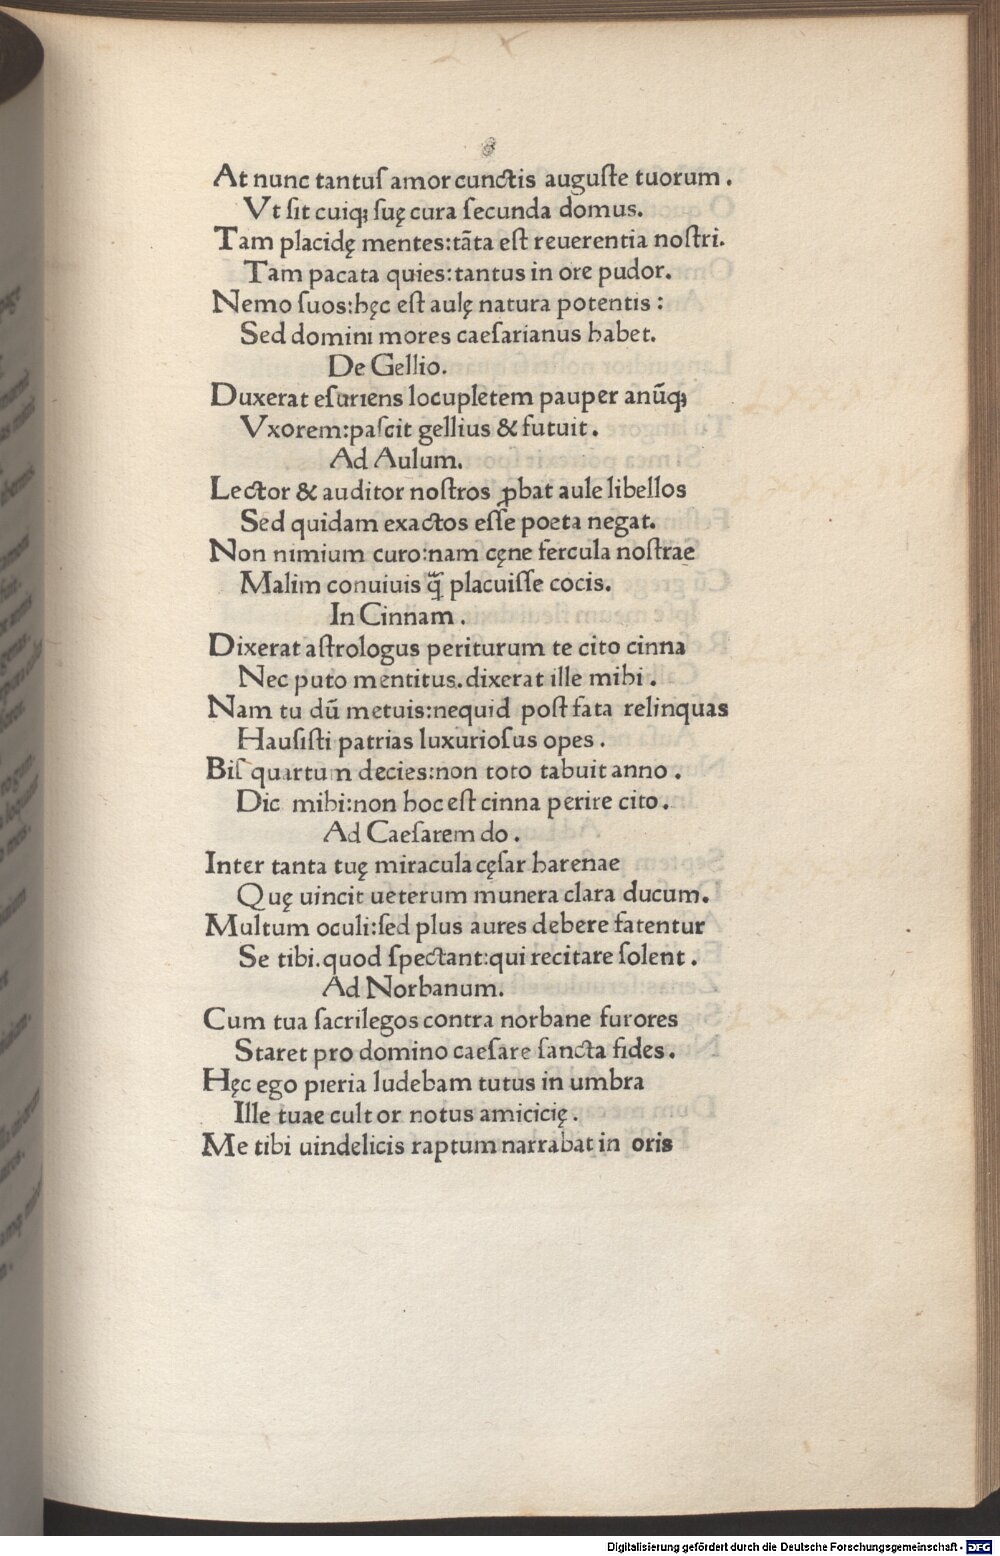 At nunc tantuſ amor cunctis auguſte tuorum .
Vt ſit cuiqꝫ ſuę cura ſecunda domus.
Tam placidę mentes:tāta eſt reuerentia noſtri.
Tam pacata quies:tantus in ore pudor.
Nemo ſuos:hęc eſt aulę natura potentis :
Sed domini mores caeſarianus habet.
De Gellio.
Duxerat eſuriens locupletem pauper anūqꝫ
Vxorem:paſcit gellius & futuit .
Ad Aulum.
Lector & auditor noſtros ꝓbat aule libellos
Sed quidam exactos eſſe poeta negat.
Non nimium curo:nam cęne fercula noſtrae
Malim conuiuis q̄ placuiſſe cocis.
In Cinnam .
Dixerat aſtrologus periturum te cito cinna
Nec puto mentitus.dixerat ille mihi .
Nam tu dū metuis:nequid poſt fata relinquas
Hauſiſti patrias luxurioſus opes .
Biſ quartum decies:non toto tabuit anno .
Dic mihi:non hoc eſt cinna perire cito .
Ad Caeſarem do .
Inter tanta tuę miracula cęſar harenae
Quę uincit ueterum munera clara ducum.
Multum oculi:ſed plus aures debere fatentur
Se tibi.quod ſpectant:qui recitare ſolent .
Ad Norbanum.
Cum tua ſacrilegos contra norbane furores
Staret pro domino caeſare ſancta fides .
Hęc ego pieria ludebam tutus in umbra
Ille tuae cultor notus amicicię .
Me tibi uindelicis raptum narrabat in oris
Digitalisierung gefördert durch die Deutsche Forschungsgemeinschaft - DFG